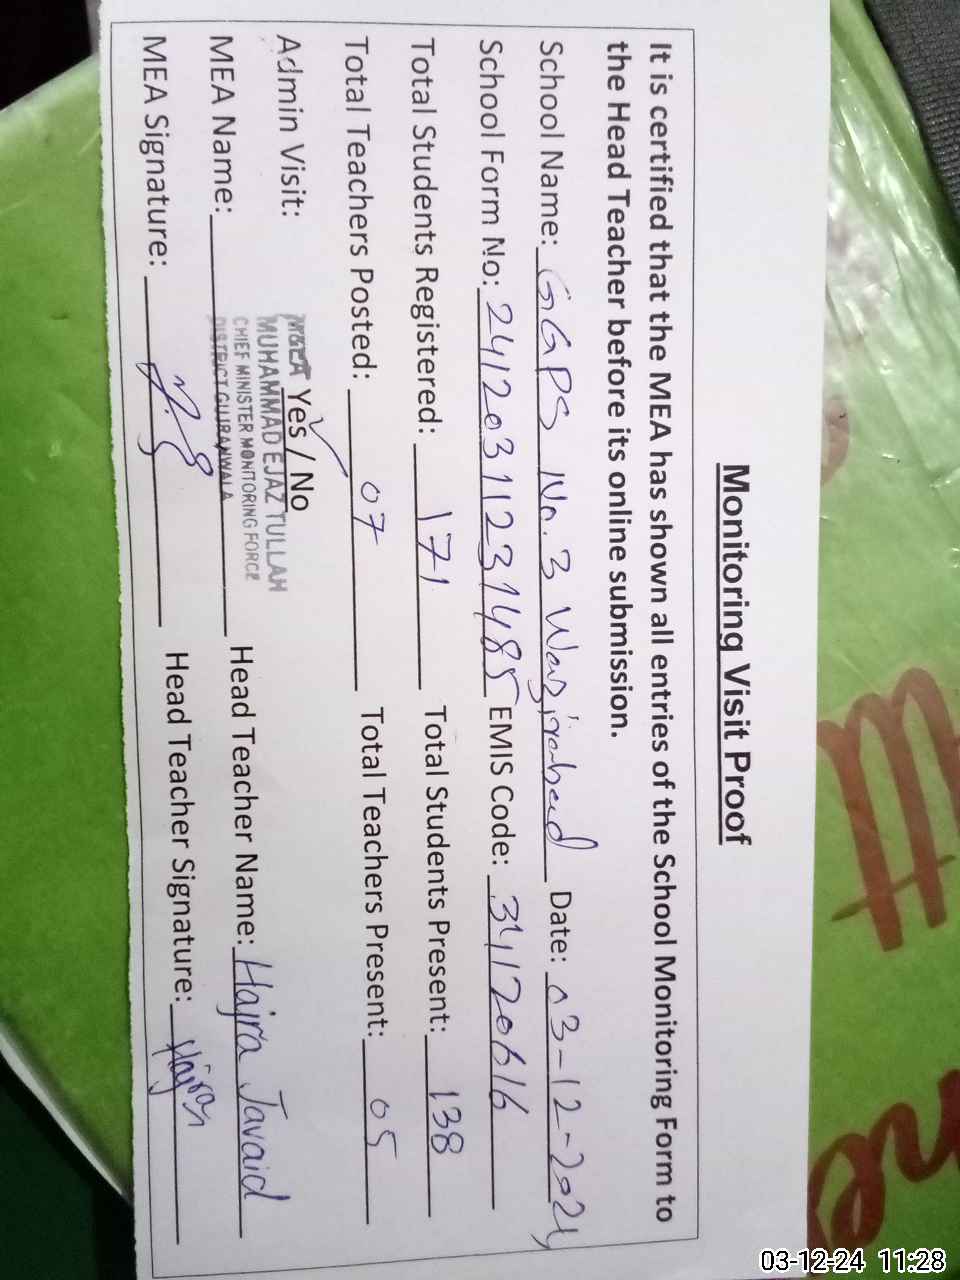 Monitoring Visit Proof
It is certified that the MEA has shown all entries of the School Monitoring Form to
the Head Teacher before its online submission.
School Name: GGPS No. 3 Wazirabad Date: 03-12-2024
School Form No: 24120311231485 EMIS Code: 34120616
Total Students Registered: 171 Total Students Present: 138
Total Teachers Posted: 07 Total Teachers Present: 05
Admin Visit: Yes / No
MUHAMMAD EJAZ TULLAH
CHIEF MINISTER MONITORING FORCE
DISTRICT GUJRANWALA
MEA Name: Head Teacher Name: Hajra Javaid
MEA Signature: Head Teacher Signature: Hajra
03-12-24 11:28